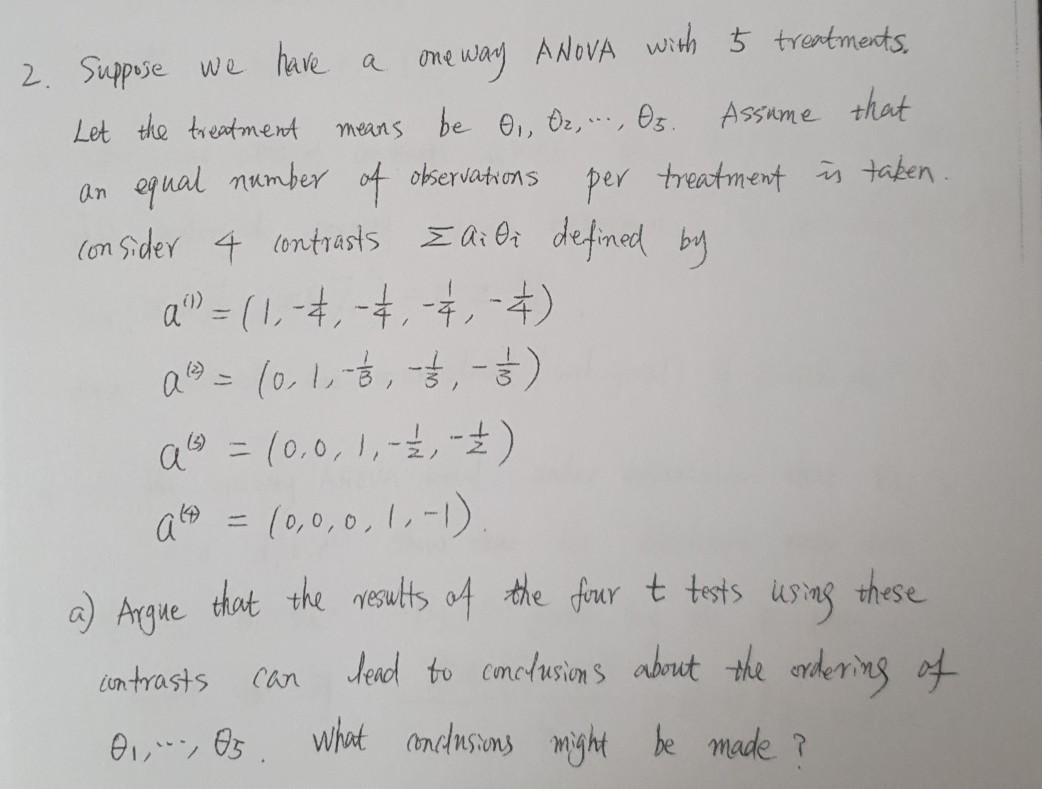 2. Suppose we have a one way ANOVA with 5 treatments.
Let the treatment means be θ₁, θ₂, ⋯, θ₅. Assume that
an equal number of observations per treatment is taken.
consider 4 contrasts Σ aᵢθᵢ defined by
a⁽¹⁾ = (1, -1/4, -1/4, -1/4, -1/4)
a⁽²⁾ = (0, 1, -1/3, -1/3, -1/3)
a⁽³⁾ = (0, 0, 1, -1/2, -1/2)
a⁽⁴⁾ = (0, 0, 0, 1, -1).
a) Argue that the results of the four t tests using these
contrasts can lead to conclusions about the ordering of
θ₁, ⋯, θ₅. What conclusions might be made?